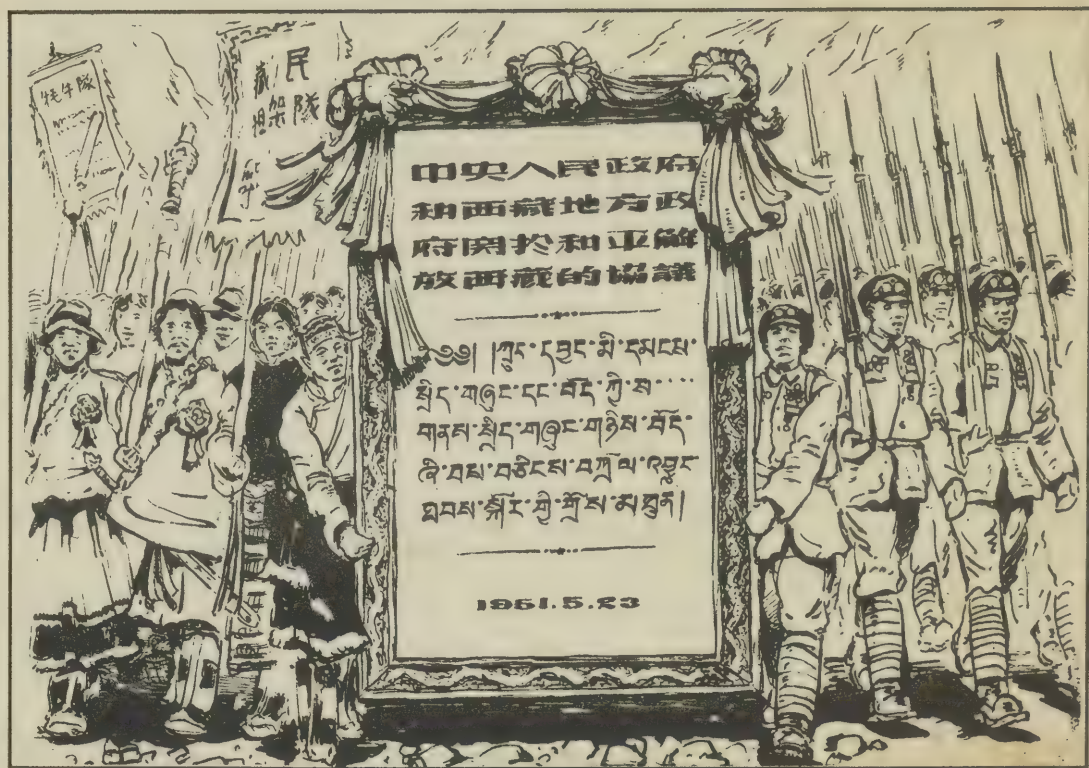 牦牛隊
藏民
担架隊
中央人民政府
和西藏地方政
府関於和平解
放西藏的協議
༄༅། །ཀྲུང་དབྱང་མི་དམངས་
སྲིད་གཞུང་དང་བོད་ཀྱི་ས་····
གནས་སྲིད་གཞུང་གཉིས་བོད་
ཞི་བས་བཅིངས་བཀྲོལ་འབྱུང་
ཐབས་སྐོར་གྱི་གྲོས་མཐུན།
1951.5.23